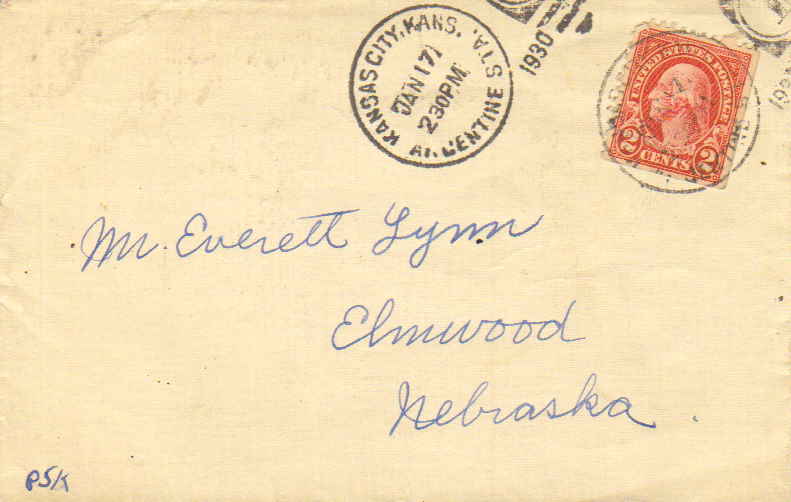 KANSAS CITY, KANS.
ARGENTINE STA.
JAN 17
2 30 PM
1930
UNITED STATES POSTAGE
2 CENTS 2
Mr. Everett Lynn
Elmwood
Nebraska
PSK